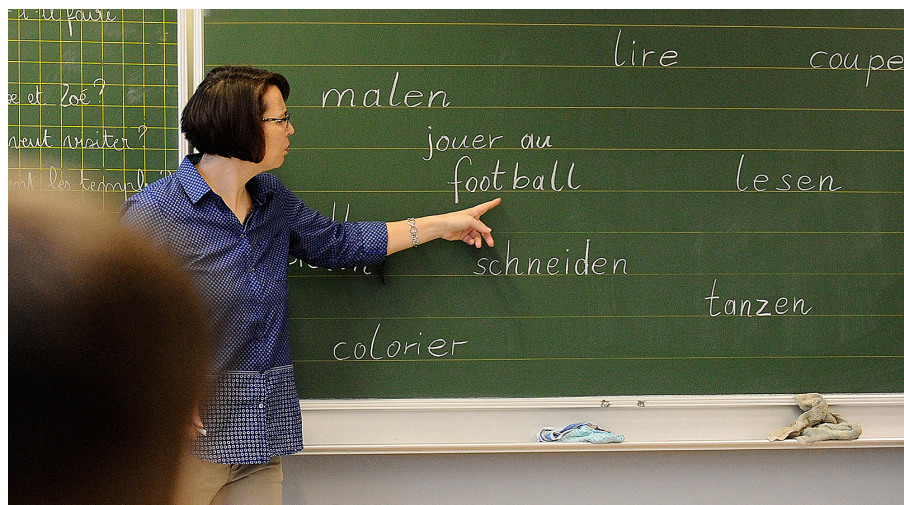 faire
et Zoé?
veut visiter?
les temple
lire
coupe
malen
jouer au
football
lesen
schneiden
tanzen
colorier